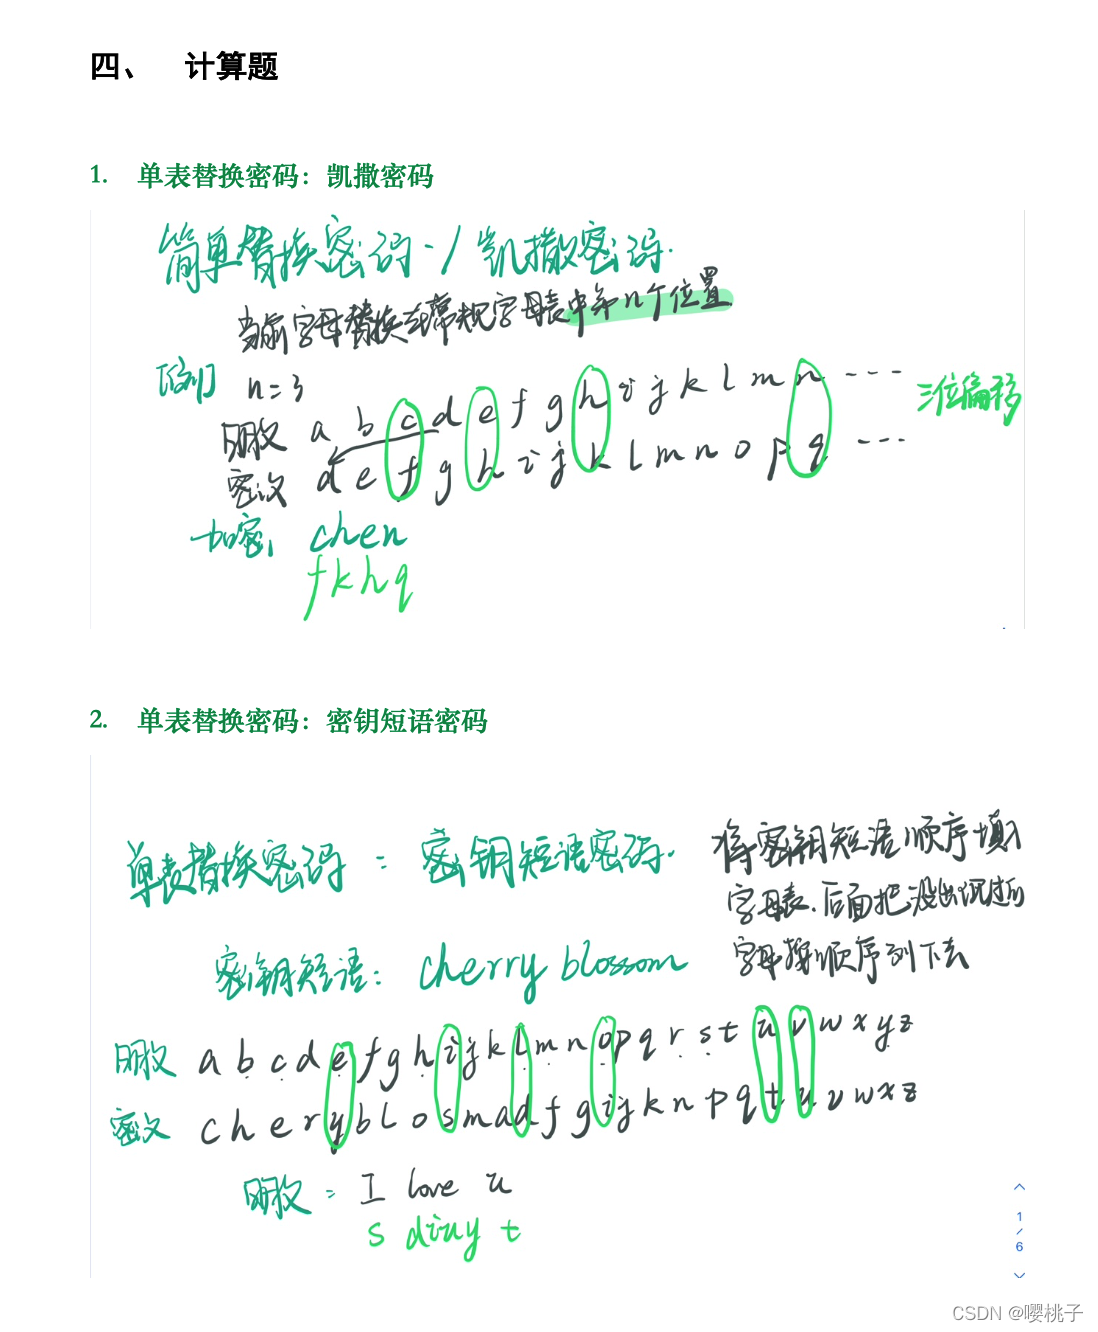 四、 计算题
1. 单表替换密码：凯撒密码
简单替换密码-/凯撒密码.
当前字母替换在常规字母表中第n个位置
例 n=3
明文 a b c d e f g h i j k l m n ---
三位偏移
密文 d e f g h i j k l m n o p q ---
加密: chen
fkhq
2. 单表替换密码：密钥短语密码
单表替换密码 = 密钥短语密码.
将密钥短语顺序填入
字母表.后面把没出现过的
字母按顺序列下去
密钥短语: cherry blossom
明文 a b c d e f g h i j k l m n o p q r s t u v w x y z
密文 c h e r y b l o s m a d f g i j k n p q t u v w x z
明文 = I love u
s diuy t
1
/
6
CSDN @嘤桃子